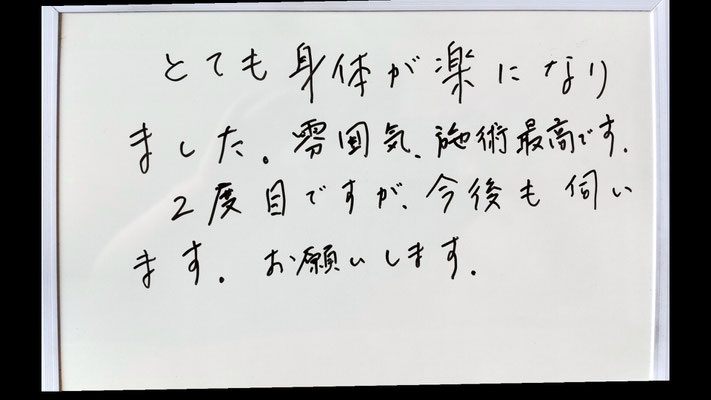 とても身体が楽になり
ました。雰囲気、施術最高です。
2度目ですが、今後も伺い
ます。お願いします。